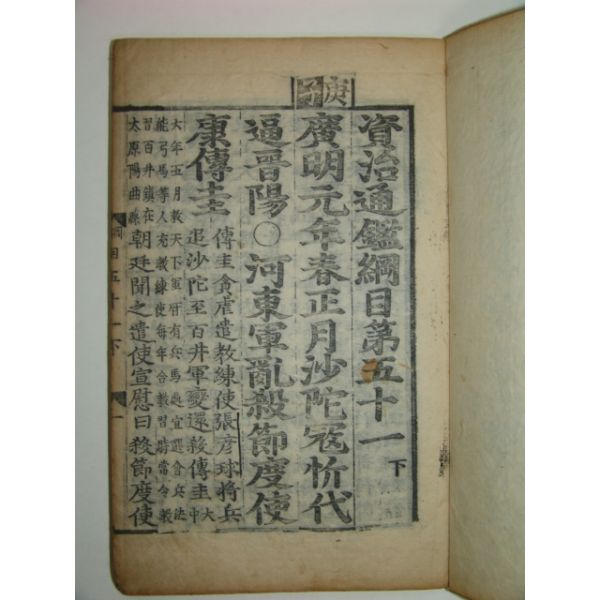 庚子
資治通鑑綱目第五十一 下
廣明元年春正月沙陀寇忻代
逼晉陽○河東軍亂殺節度使
康傳圭 傳圭貪虐遣教練使張彦球將兵
追沙陀至百井軍變還殺傳圭 大中
大年五月敕天下軍府有兵馬處宜選會兵法
能弓馬等人充教練使每年合教習時常令教
習百井鎮在
太原陽曲縣 朝廷聞之遣使宣慰曰殺節度使